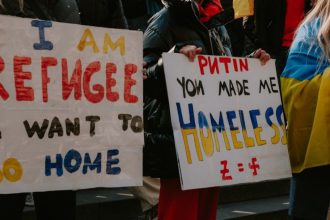 I AM
REFUGEE
I WANT TO
GO HOME
PUTIN
YOU MADE ME
HOMELESS
Z = 卐